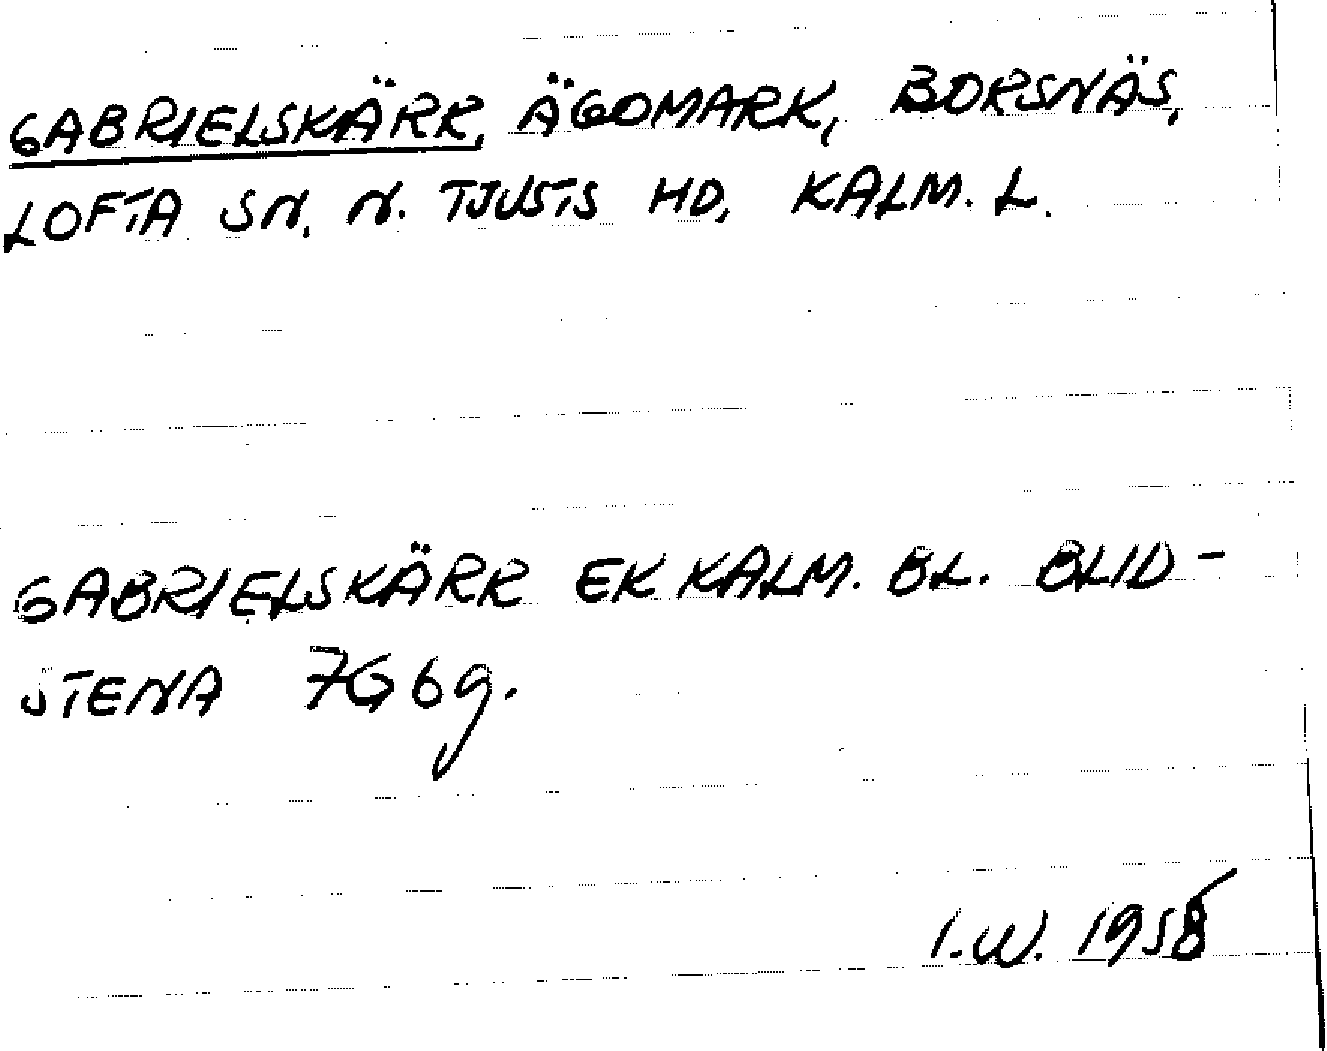 GABRIELSKÄRR, ÄGOMARK, BORSNÄS,
LOFTA SN, N. TJUSTS HD, KALM. L.
GABRIELSKÄRR EK KALM. BL. BLID-
STENA 7G6g.
I.W. 1958